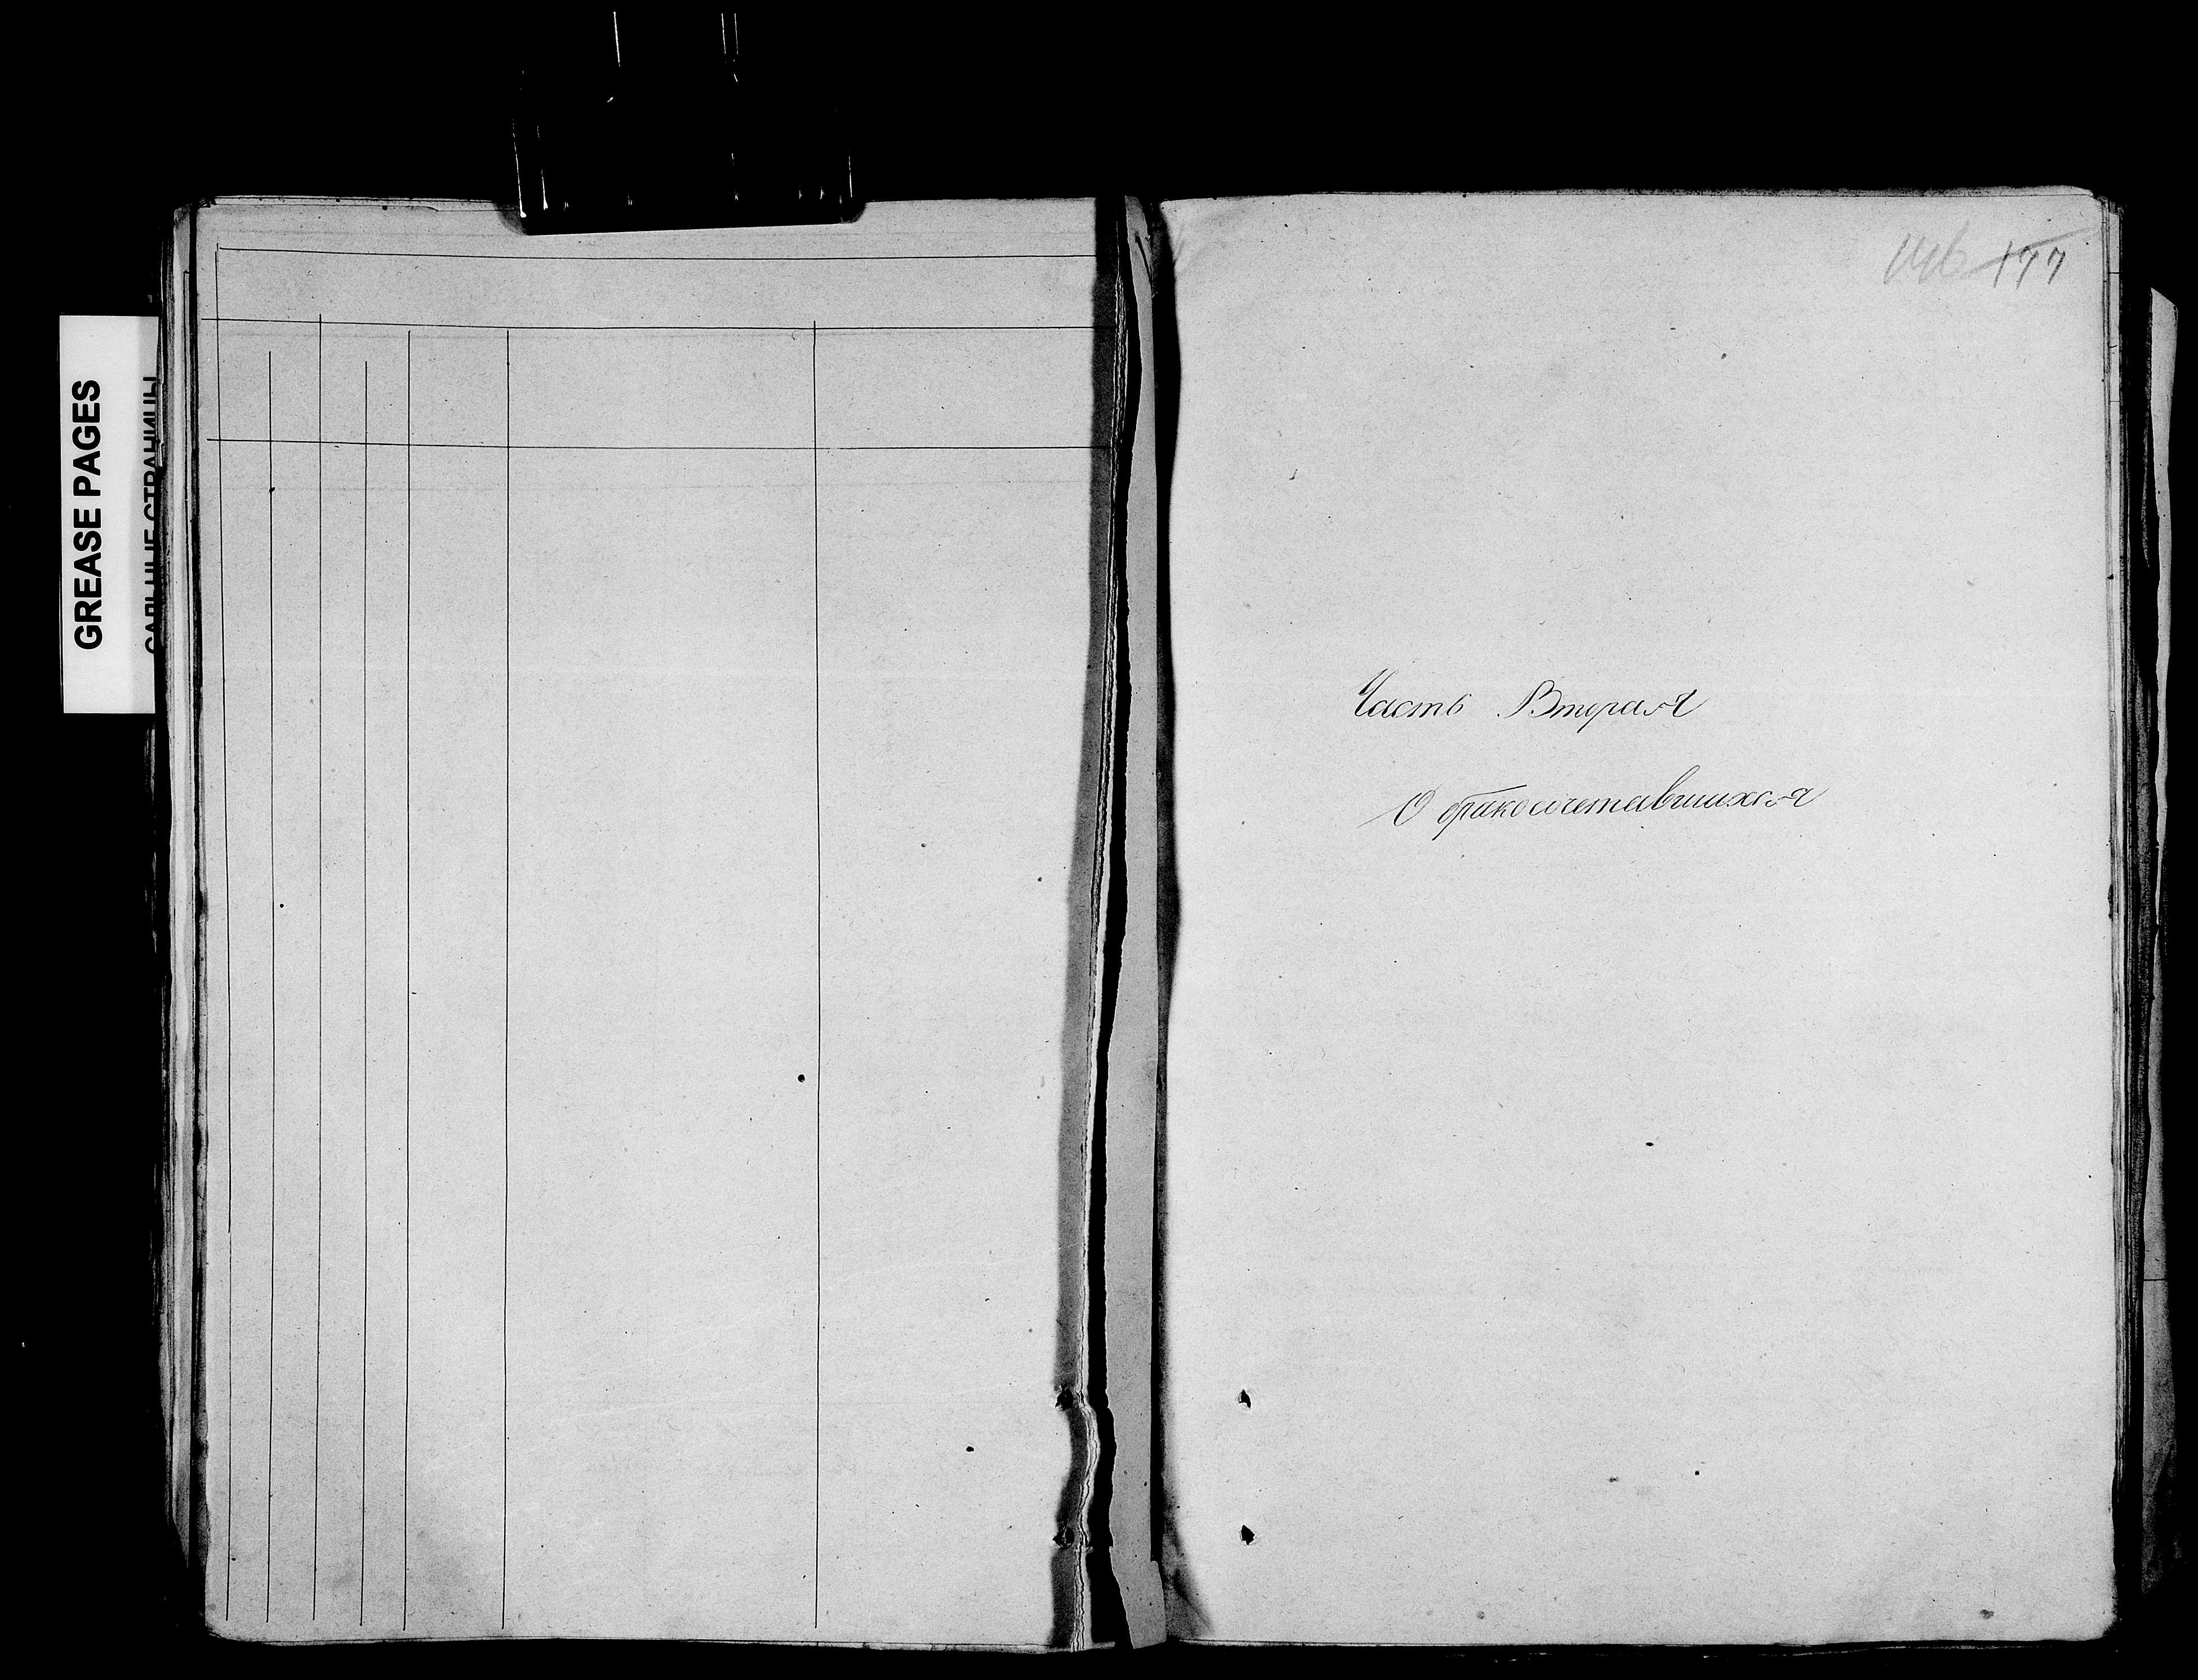 GREASE PAGES
САЛЬНЫЕ СТРАНИЦЫ
146 177
Часть Вторая
О бракосочетавшихся